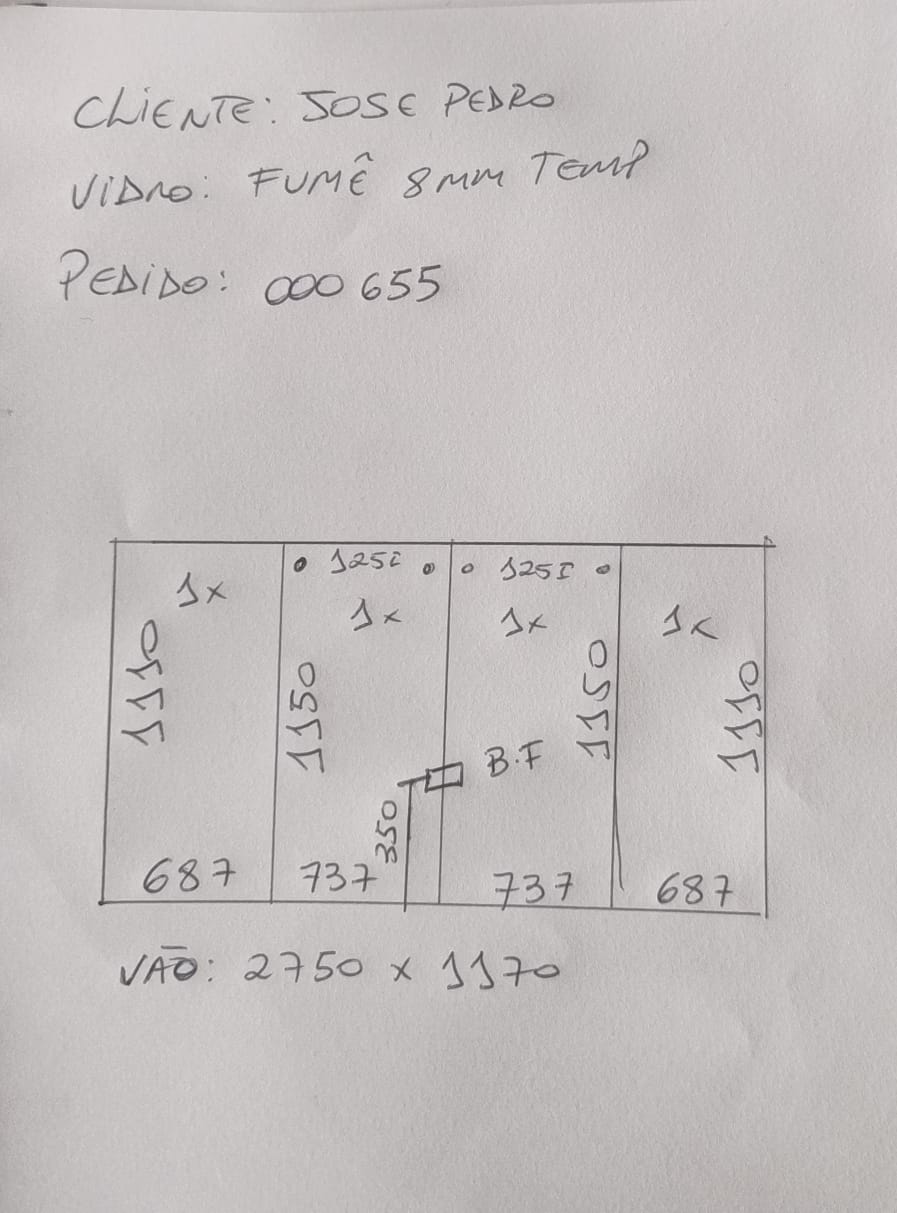 CLIENTE: JOSE PEDRO
VIDRO: FUMÊ 8MM TEMP
PEDIDO: 000655
1x
1110
687
125I
1x
1150
350
737
125I
1x
1150
B.F
737
1x
1110
687
VÃO: 2750 x 1170